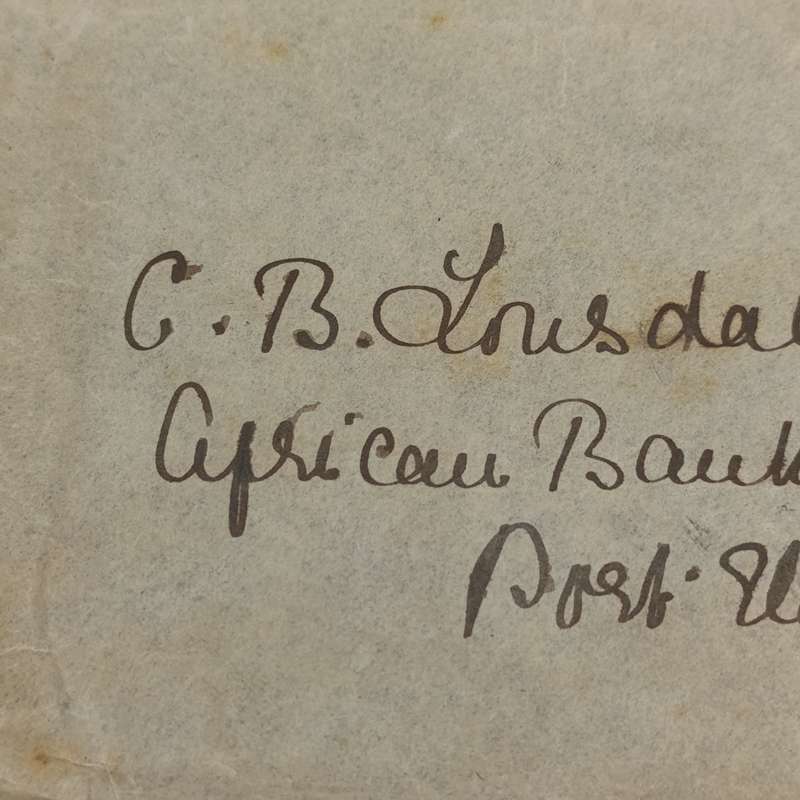 C. B. Lonsdal
African Bank
Port El